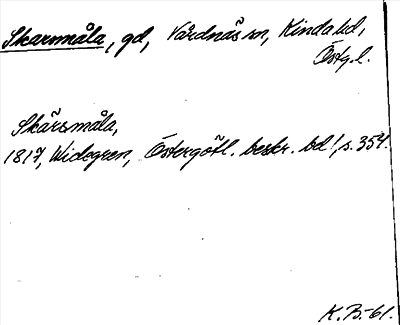 Skarnmåla, gd, Vårdnäs sn, Kinda hd,
Östg.l.
Skärsmåla,
1817, Widegren, Östergötl. beskr. bd 1, s. 354.
K.B.-61.